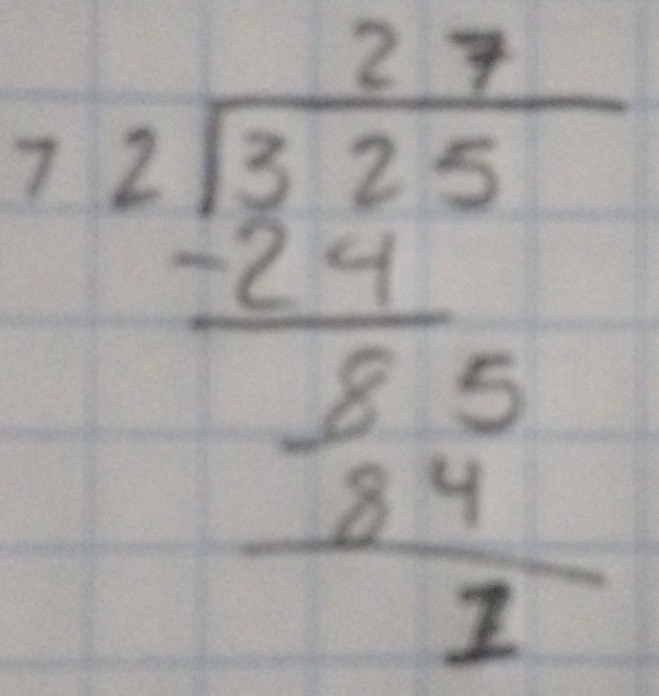 27
12√325
-24
85
-84
1